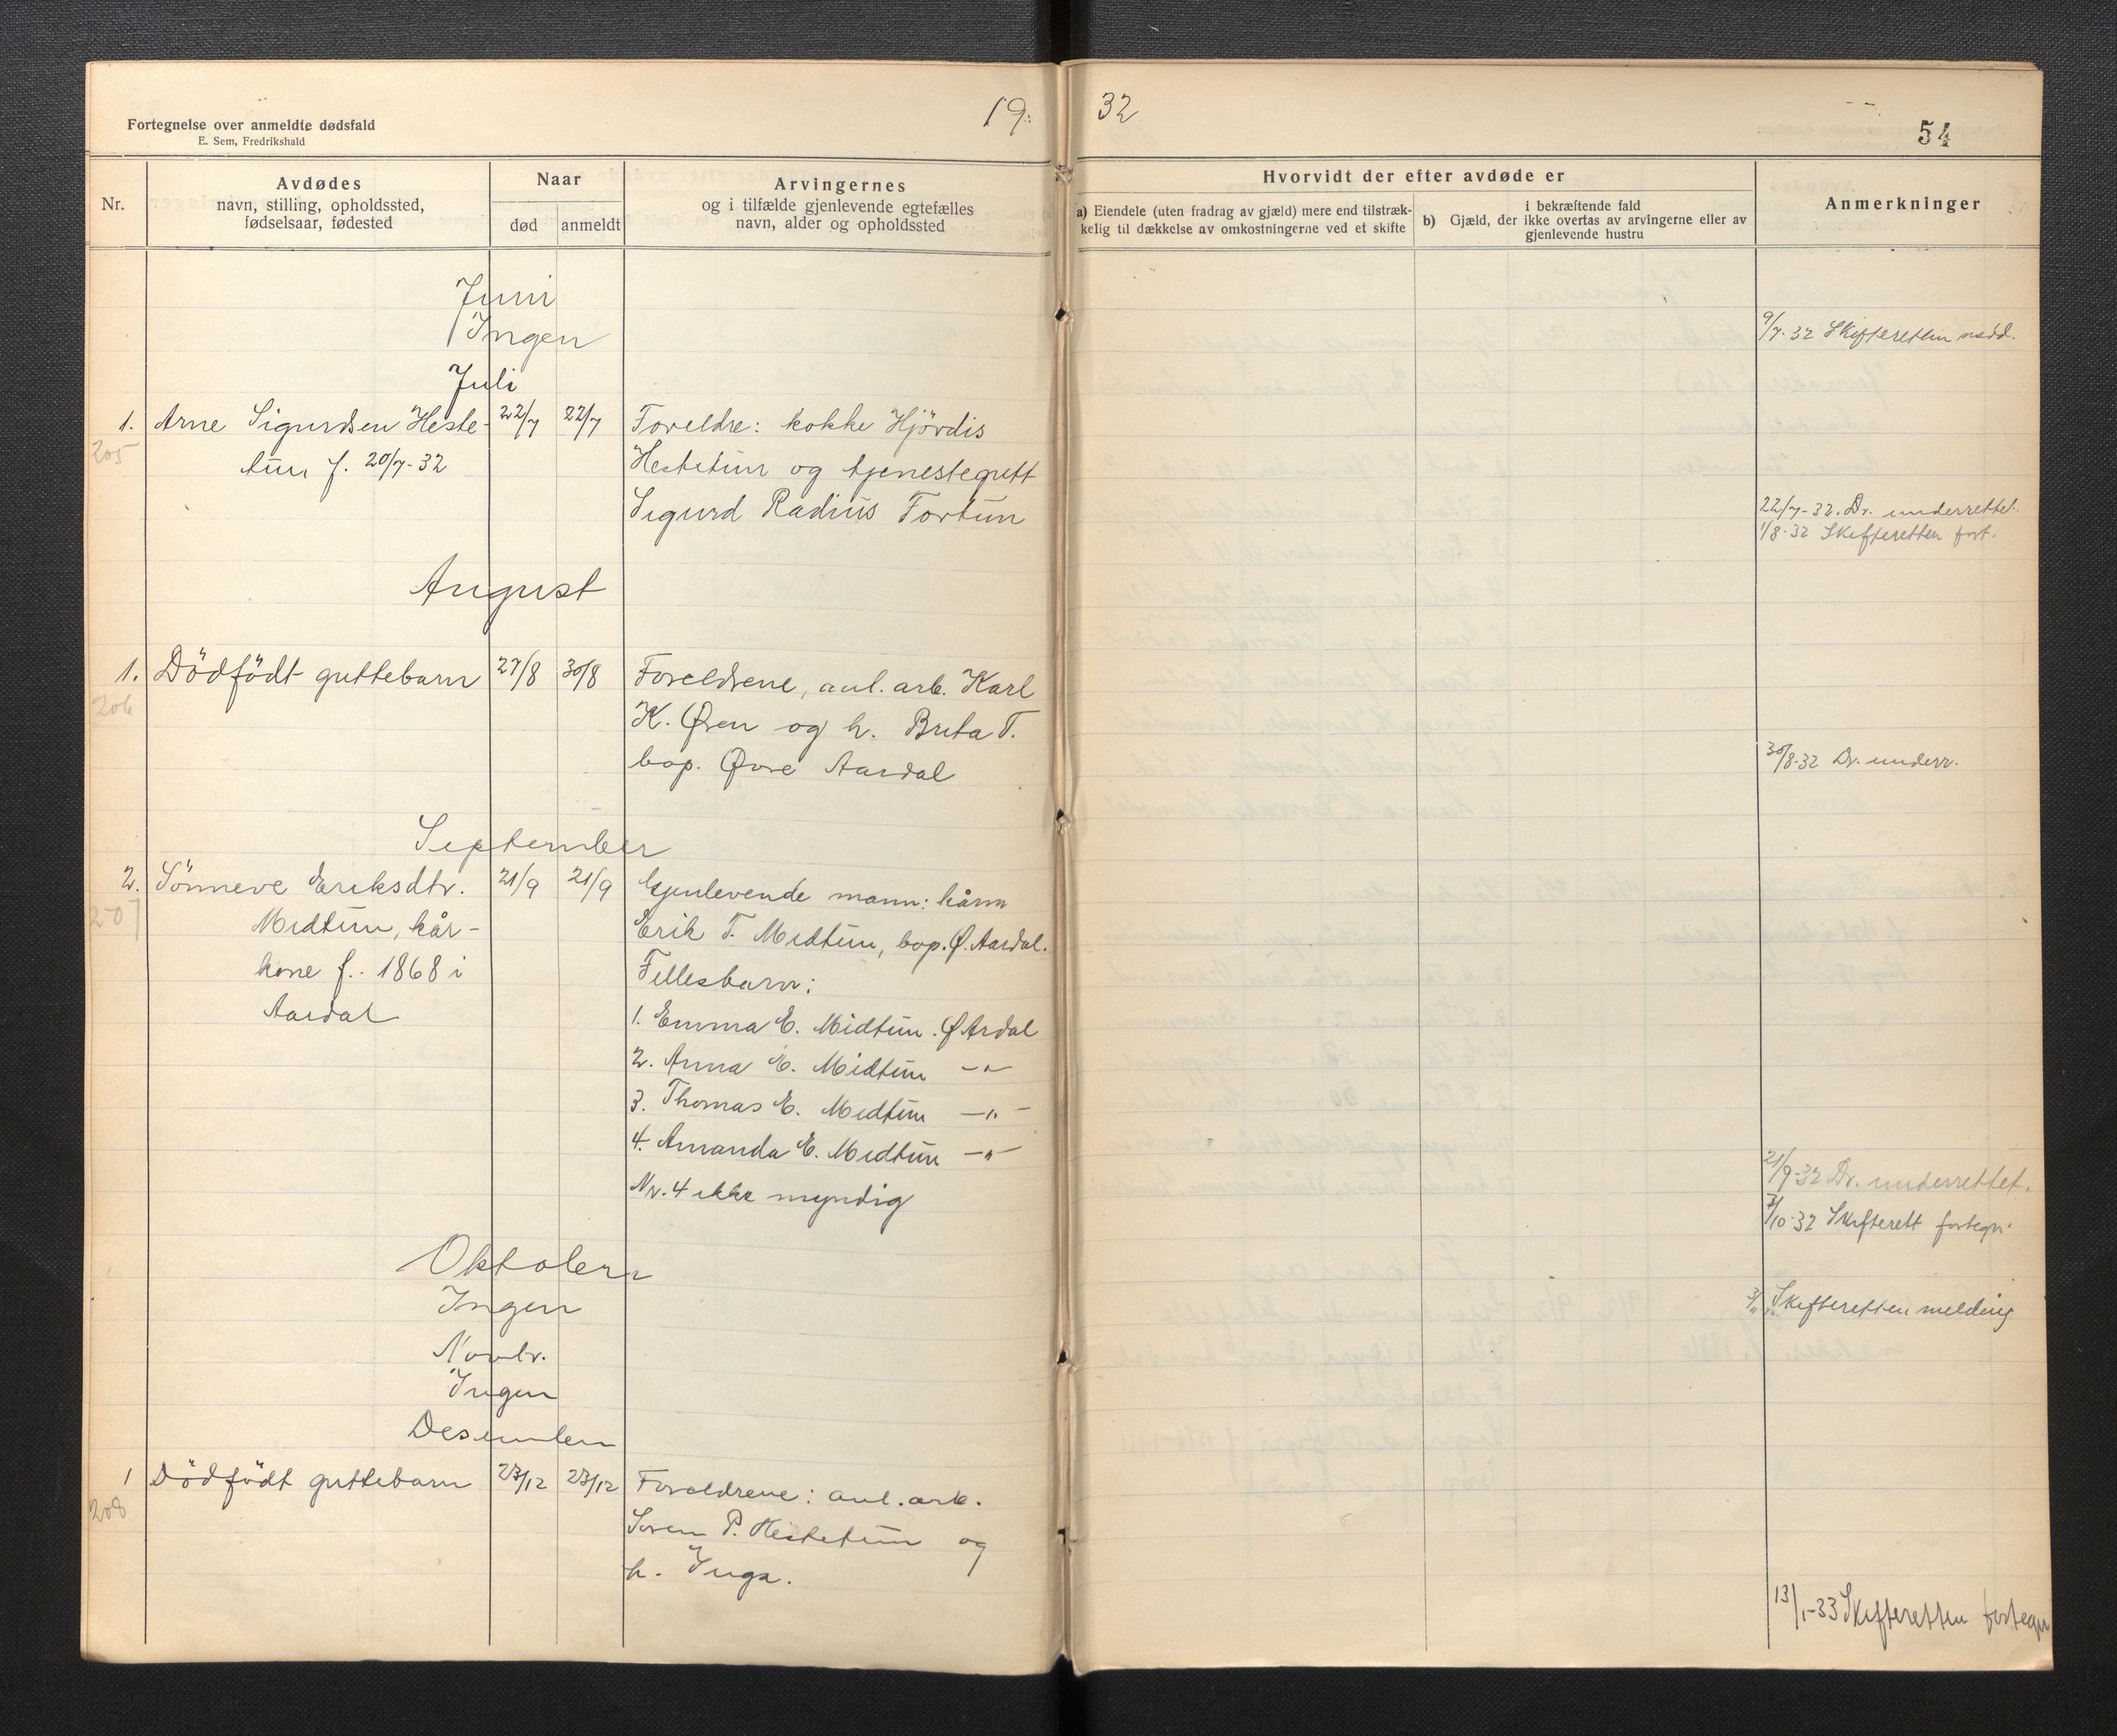 Fortegnelse over anmeldte dødsfald
E. Sem, Fredrikshald
19 32
54
Nr.
Avdødes
navn, stilling, opholdssted,
fødselsaar, fødested
Naar
død
anmeldt
Arvingernes
og i tilfælde gjenlevende egtefælles
navn, alder og opholdssted
Hvorvidt der efter avdøde er
a) Eiendele (uten fradrag av gjæld) mere end tilstræk-
kelig til dækkelse av omkostningerne ved et skifte
i bekræftende fald
b) Gjæld, der ikke overtas av arvingerne eller av
gjenlevende hustru
Anmerkninger
Juni
Ingen
9/7-32 Skifteretten
Juli
1. Arne Sigurdsen Heste- 22/7 22/7 Foreldre: kokke Hjördis
205
tun f. 20/7-32 Hestetun og tjenestegutt
Sigurd Radius Fortun
22/7-32. Dr. underrettet.
1/8-32 Skifteretten fort.
August
1. Dödfödt guttebarn 27/8 30/8 Foreldrene, anl. arb. Karl
206
K. Øren og h. Brita T.
bop. Øvre Aardal
30/8-32 Dr. underr.
September
2. Sönneve Eriksdtr. 21/9 21/9 Gjenlevende mann: kårm
207
Midtun, kår- Erik T. Midtun, bop. Ø. Aardal.
kone f. 1868 i Fellesbarn:
Aardal
1. Emma E. Midtun. Ø Ardal
2. Anna E. Midtun -"-
3. Thomas E. Midtun -"-
4. Amanda E. Midtun -"-
Nr. 4 ikke myndig
21/9-32 Dr. underrettet.
/10-32 Skifterett fortegn.
Oktober
Ingen
Skifteretten melding
Novbr.
Ingen
Desember
1 Dödfödt guttebarn 23/12 23/12 Foreldrene: anl. arb.
208
Soren P. Hestetun og
h. Inga.
13/1-33 Skifteretten fortegn